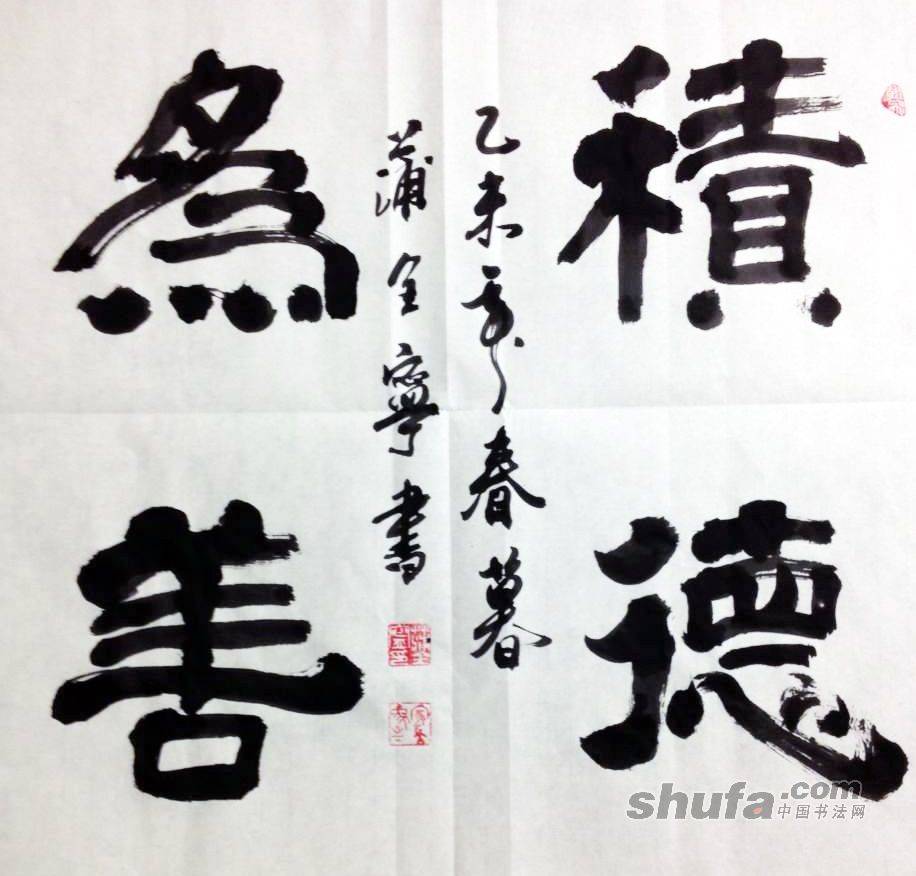 積德
為善
乙未年春暮
蒲全寧書
shufa.com
中国书法网